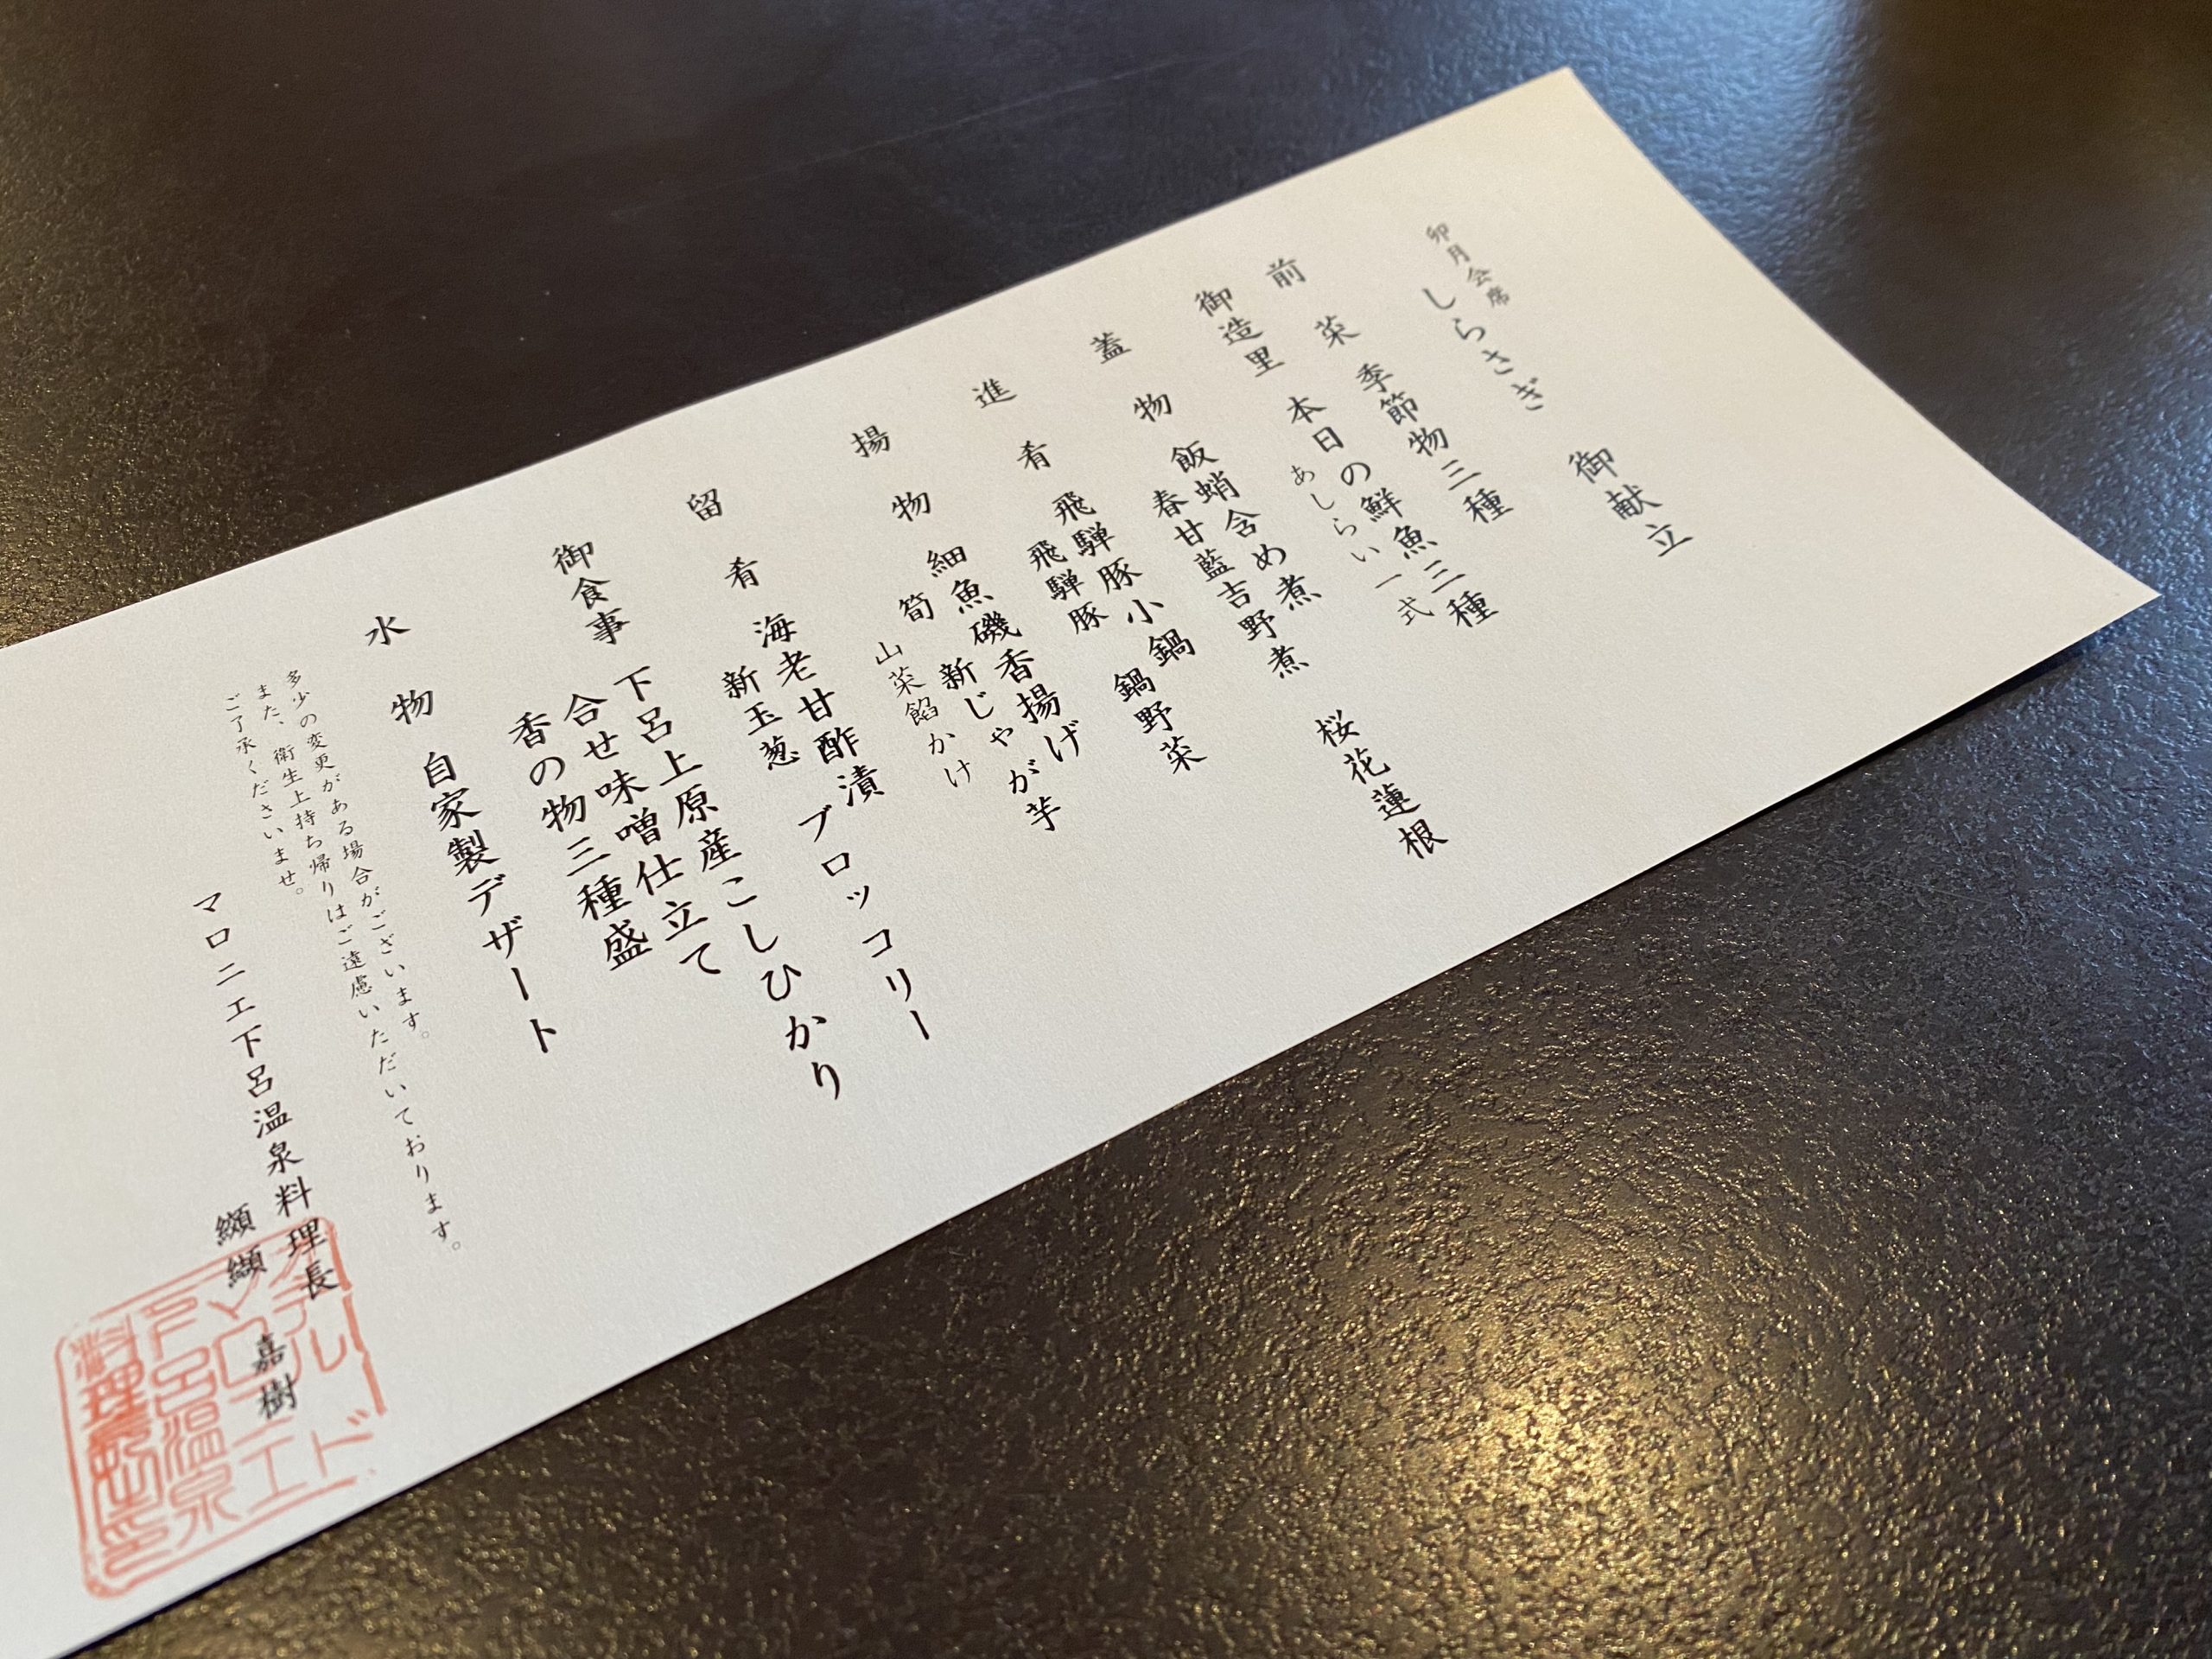 卯月会席
しらさぎ 御献立
前菜 季節物三種
御造里 本日の鮮魚三種
あしらい一式
蓋物 飯蛸含め煮 桜花蓮根
春甘藍吉野煮
進肴 飛騨豚小鍋
飛騨豚 鍋野菜
揚物 細魚磯香揚げ
筍 新じゃが芋
山菜餡かけ
留肴 海老甘酢漬 ブロッコリー
新玉葱
御食事 下呂上原産こしひかり
合せ味噌仕立て
香の物三種盛
水物 自家製デザート
多少の変更がある場合がございます。
また、衛生上持ち帰りはご遠慮いただいております。
ご了承くださいませ。
マロニエ下呂温泉料理長
纐纈 嘉樹
ホテル
マロニエ
下呂温泉
料理長之印